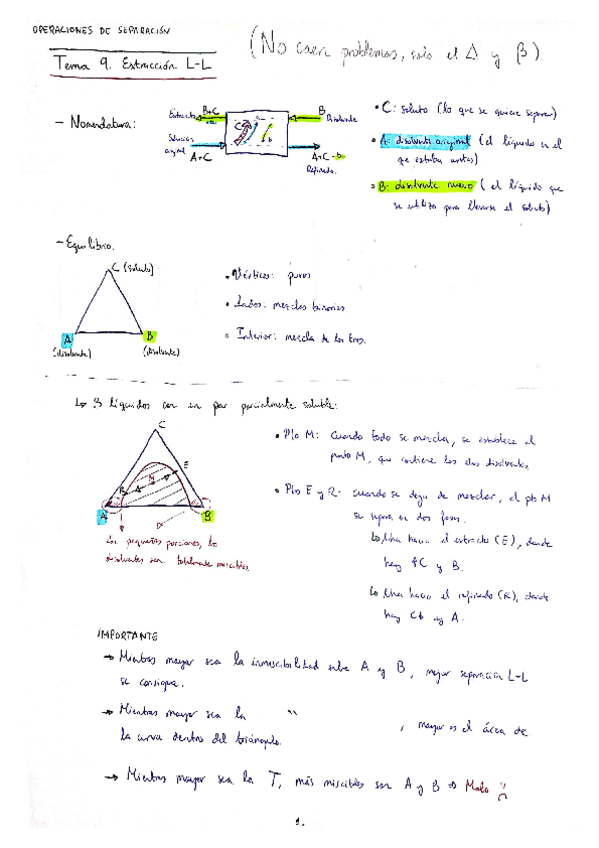 OPERACIONES DE SEPARACIÓN
(No caen problemas, solo el Δ y β).
Tema 9. Extracción L-L
- Nomenclatura:
Extracto B+C
B Disolvente
Solución original A+C
A+C
Refinado.
• C: soluto (lo que se quiere separar)
• A: disolvente original (el líquido en el
que estaba antes)
• B: disolvente nuevo (el líquido que
se utiliza para llevarse el soluto)
- Equilibrio.
C (soluto)
A
B
(disolvente)
(disolvente)
• Vértices: puros
• Lados: mezclas binarias
• Interior: mezcla de los tres.
↳ 3 líquidos con un par parcialmente soluble:
C
E
M
R
A
B
En pequeñas porciones, los
disolventes son totalmente miscibles
• Pto M: Cuando todo se mezcla, se establece el
punto M, que contiene los dos disolventes.
• Ptos E y R: cuando se deja de mezclar, el pto M
se separa en dos fases.
↳ Una hacia el extracto (E), donde
hay ↑C y B.
↳ Una hacia el refinado (R), donde
hay C↓ y A.
IMPORTANTE
→ Mientras mayor sea la inmiscibilidad entre A y B, mejor separación L-L
se consigue.
→ Mientras mayor sea la " , mayor es el área de
la curva dentro del triángulo.
→ Mientras mayor sea la T, más miscibles son A y B ⇒ Malo :(
1.